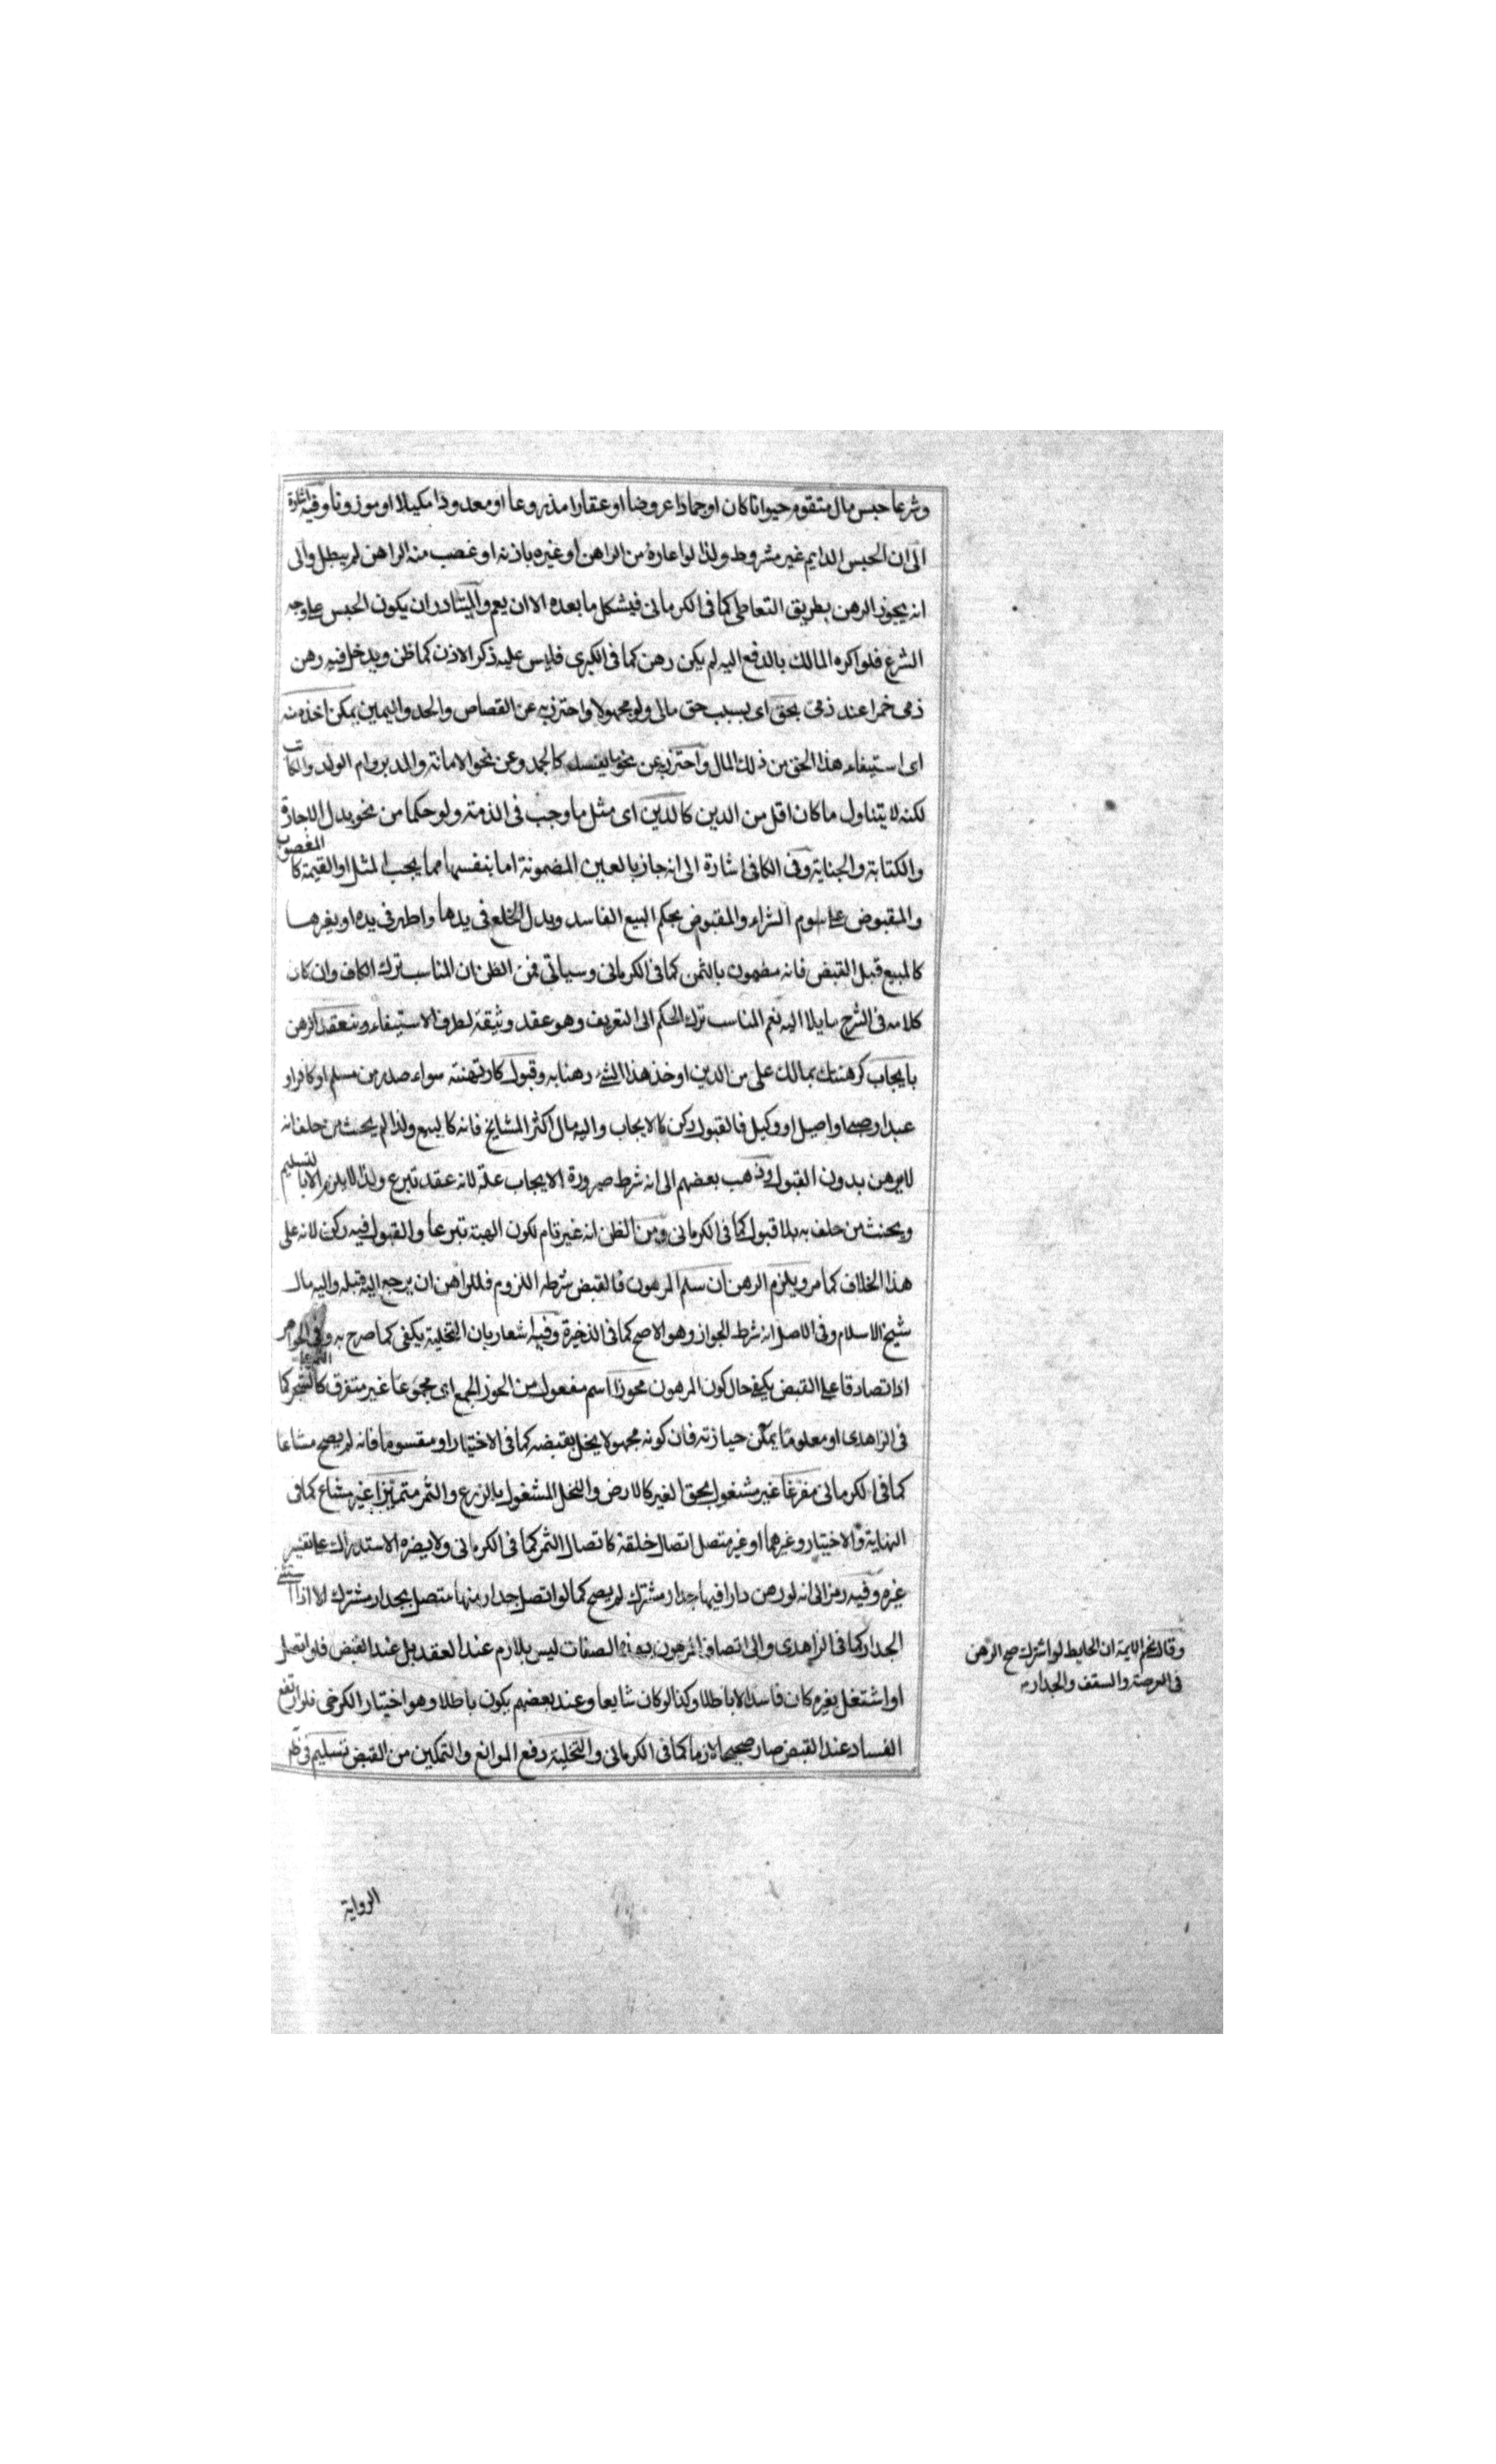 وشرعا حبس مال متقوم حيوانا كان او جمادا عروضا او عقارا مذروعا او معدودا مكيلا او موزونا وفيه اشارة
الى ان الحبس الدايم غير مشروط ولذا لو اعاره من الراهن او غيره باذنه او غصب منه الراهن لم يبطل والى
انه يجوز الرهن بطريق التعاطى كما فى الكرمانى فيشكل ما بعده الا ان يعم والمتبادر ان يكون الحبس على وجه
الشرع فلو اكره المالك بالدفع اليه لم يكن رهن كما فى الكبرى فليس عليه ذكر الاذن كما ظن ويدخل فيه رهن
ذمى خمرا عند ذمى بحق اى بسبب حق مالى ولو مجهولا واحترز به عن القصاص والحد واليمين يمكن اخذه منه
اى استيفاء هذا الحق من ذلك المال واحترز به عن نحو ما يفسد كالجمد وعن نحو الامانة والمدبر وام الولد والمكاتب
لكنه لا يتناول ما كان اقل من الدين كالدين اى مثل ما وجب فى الذمة ولو حكما من نحو بدل الاجارة
والكتابة والجناية وفى الكافى اشارة الى انه جاز بالعين المضمونة اما بنفسها مما يجب المثل او القيمة كالمغصوب
والمقبوض على سوم الشراء والمقبوض بحكم البيع الفاسد وبدل الخلع فى يدها والمهر فى يده او بغيرها
كالمبيع قبل القبض فانه مضمون بالثمن كما فى الكرمانى وسياتى فمن الظن ان المناسب ترك الكاف وان كان
كلامه فى الشرح مايلا اليه نعم المناسب ترك الحكم الى التعريف وهو عقد وثيقة لطرف الاستيفاء وينعقد الرهن
بايجاب كرهنتك بمالك على من الدين او خذ هذا الشئ رهنا به وقبول كارتهنته سواء صدر من مسلم او كافر او
عبد او صبى او اصيل او وكيل فالقبول ركن كالايجاب واليه مال اكثر المشايخ فانه كالبيع ولذا لم يحنث من حلف انه
لا يرهن بدون القبول وذهب بعضهم الى انه شرط صيرورة الايجاب علة لانه عقد تبرع ولذا لا يلزم الا بالتسليم
ويحنث من حلف به بلا قبول كما فى الكرمانى ومن الظن انه غير تام لكون الهبة تبرعا والقبول فيه ركن لانه على
هذا الخلاف كما مر ويلزم الرهن ان سلم المرهون فالقبض شرط اللزوم فللراهن ان يرجع اليه قبله واليه مال
شيخ الاسلام وفى الاصل انه شرط الجواز وهو الاصح كما فى الذخيرة وفيه اشعار بان التخلية يكفى كما صرح به وفى الجواهر
اذا تصادقا على القبض يكفى حال كون المرهون محوزا اسم مفعول من الحوز الجمع اى مجموعا غير متفرق كالثمر على الشجر كما
فى الزاهدى او معلوما يمكن حيازته فان كونه مجهولا يخل بقبضه كما فى الاختيار او مقسوما فانه لم يصح مشاعا
كما فى الكرمانى مفرغا غير مشغول بحق الغير كالارض والنخل المشغول بالزرع والثمر متميزا غير مشاع كما فى
النهاية والاختيار وغيرهما او غير متصل اتصال خلقة كاتصال الثمر كما فى الكرمانى ولا يضره الاستدراك على تفسير
غيره وفيه رمز الى انه لو رهن دارا فيها جدار مشترك لم يصح كما لو اتصل جدار منها متصل بجدار مشترك الا اذا استثنى
الجدار كما فى الزاهدى والى اتصاف المرهون بهذه الصفات ليس بلازم عند العقد بل عند القبض فلو اتصل
او اشتغل بغيره كان فاسدا لا باطلا وكذا لو كان شايعا وعند بعضهم يكون باطلا وهو اختيار الكرخى فلو ارتفع
الفساد عند القبض صار صحيحا لازما كما فى الكرمانى والتخلية رفع الموانع والتمكين من القبض تسليم فى ظاهر
وقال نجم الايمة ان الحايط لو اشترك صح الرهن
فى العرصة والسقف والجدار
الرواية